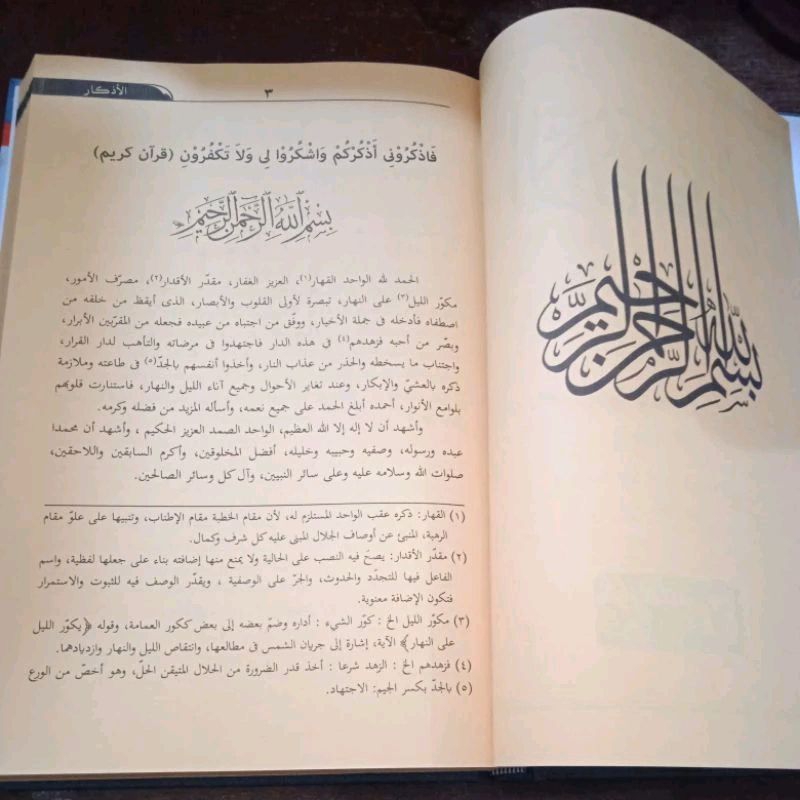 بسم الله الرحمن الرحيم
الأذكار
٣
فَاذْكُرُوْنِى أَذْكُرْكُمْ وَاشْكُرُوْا لِى وَلَا تَكْفُرُوْنِ (قرآن كريم)
بِسْمِ اللهِ الرَّحْمٰنِ الرَّحِيْمِ
الحمد لله الواحد القهار(١)، العزيز الغفار، مقدّر الأقدار(٢)، مصرّف الأمور،
مكوّر الليل(٣) على النهار، تبصرة لأولى القلوب والأبصار، الذى أيقظ من خلقه من
اصطفاه فأدخله فى جملة الأخيار، ووفّق من اجتباه من عبيده فجعله من المقرّبين الأبرار،
وبصّر من أحبه فزهدهم(٤) فى هذه الدار فاجتهدوا فى مرضاته والتأهب لدار القرار،
واجتناب ما يسخطه والحذر من عذاب النار، وأخذوا أنفسهم بالجدّ(٥) فى طاعته وملازمة
ذكره بالعشيّ والإبكار، وعند تغاير الأحوال وجميع آناء الليل والنهار، فاستنارت قلوبهم
بلوامع الأنوار، أحمده أبلغ الحمد على جميع نعمه، وأسأله المزيد من فضله وكرمه.
وأشهد أن لا إله إلا الله العظيم، الواحد الصمد العزيز الحكيم ، وأشهد أن محمدا
عبده ورسوله، وصفيه وحبيبه وخليله، أفضل المخلوقين، وأكرم السابقين واللاحقين،
صلوات الله وسلامه عليه وعلى سائر النبيين، وآل كل وسائر الصالحين.
(١) القهار: ذكره عقب الواحد المستلزم له، لأن مقام الخطبة مقام الإطناب، وتنبيها على علوّ مقام
الرهبة، المنبئ عن أوصاف الجلال المبنى عليه كل شرف وكمال.
(٢) مقدّر الأقدار: يصحّ فيه النصب على الحالية ولا يمنع منها إضافته بناء على جعلها لفظية، واسم
الفاعل فيها للتجدّد والحدوث، والجرّ على الوصفية ، ويقدّر الوصف فيه للثبوت والاستمرار
فتكون الإضافة معنوية.
(٣) مكوّر الليل الخ : كوّر الشيء : أداره وضمّ بعضه إلى بعض ككور العمامة، وقوله ﴿يكوّر الليل
على النهار﴾ الآية، إشارة إلى جريان الشمس فى مطالعها، وانتقاص الليل والنهار وازديادهما.
(٤) فزهدهم الخ : الزهد شرعا : أخذ قدر الضرورة من الحلال المتيقن الحلّ، وهو أخصّ من الورع
(٥) بالجدّ بكسر الجيم: الاجتهاد.